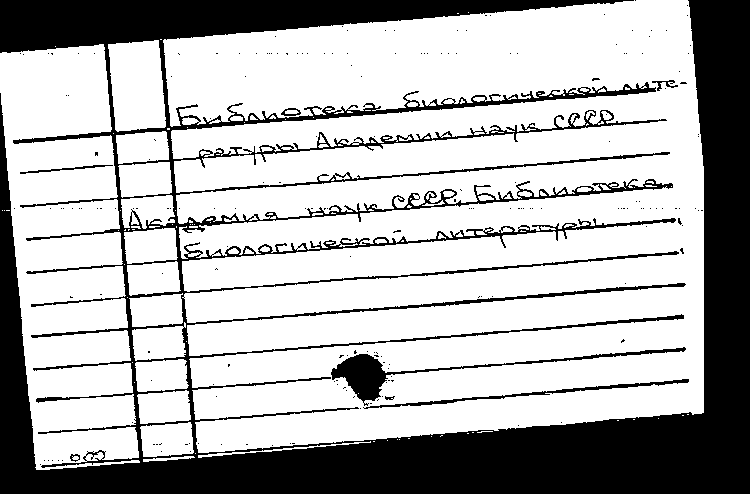 Библиотека биологической лите-
ратуры Академии наук СССР.
см.
Академия наук СССР. Библиотека
биологической литературы.